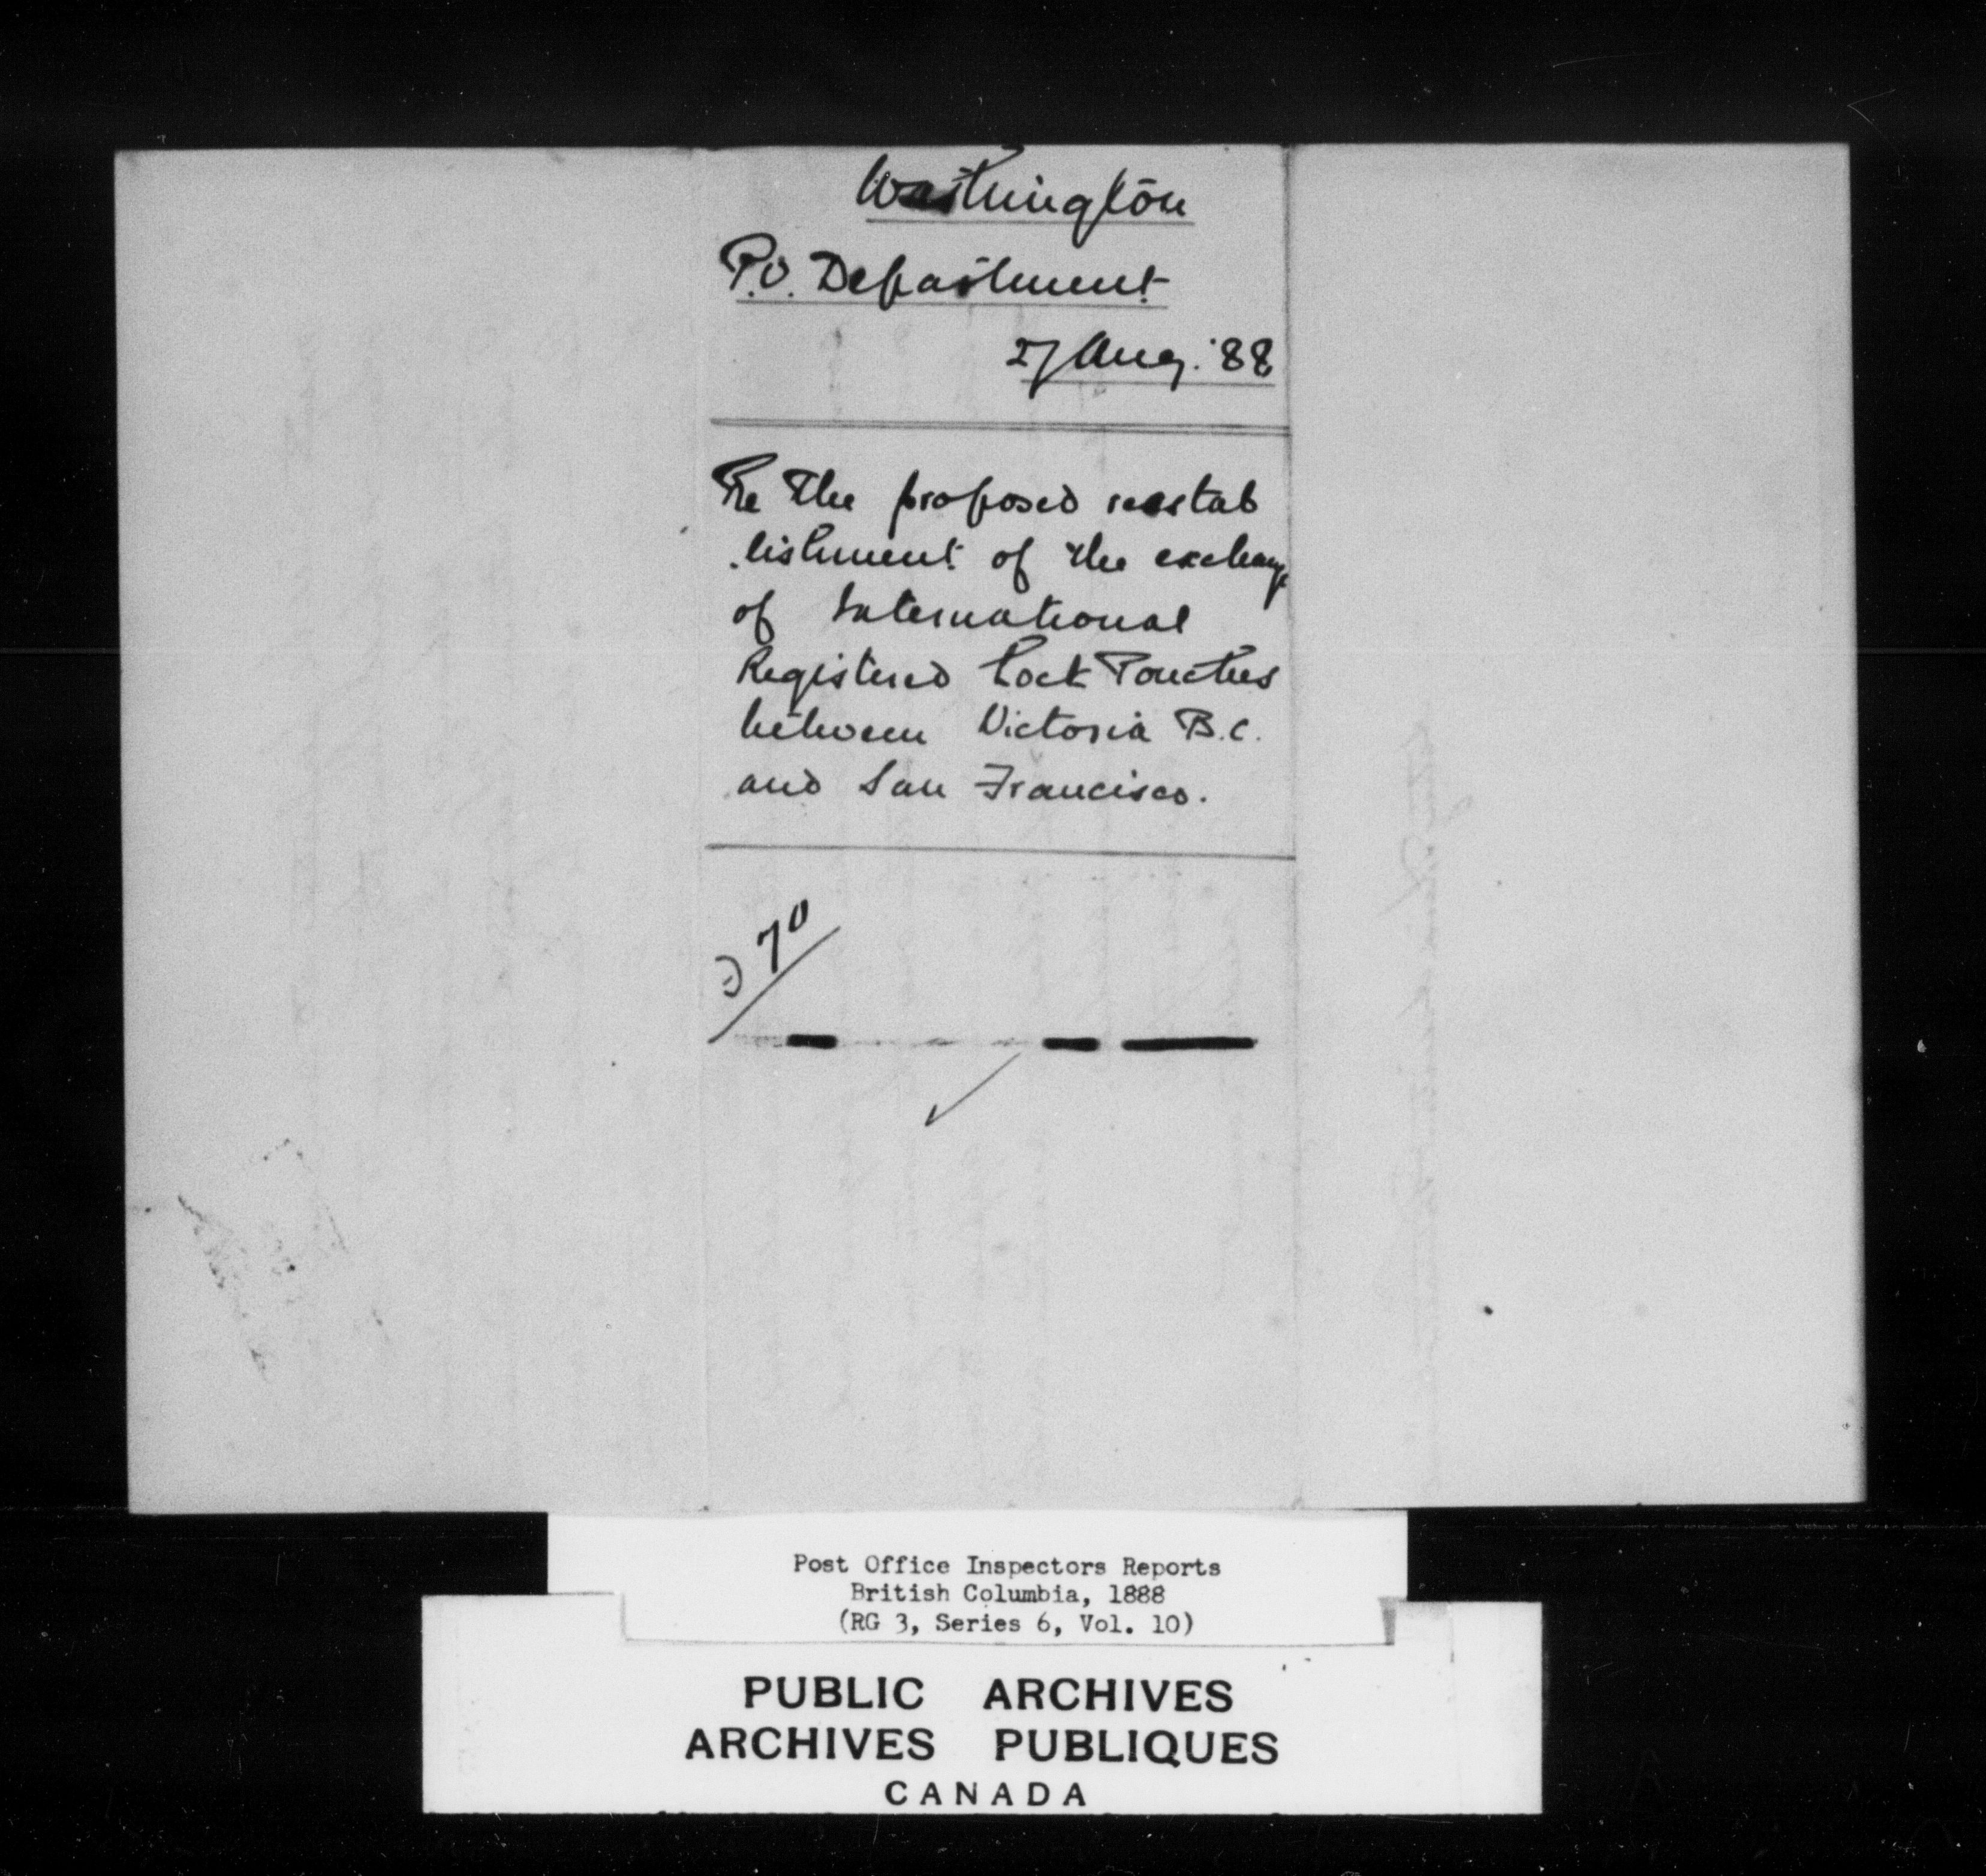 Washington
P.O. Department
27 Aug. '88
Re the proposed reestab
.lishment of the exchange
of International
Registered Lock Pouches
between Victoria B.C.
and San Francisco.
70
Post Office Inspectors Reports
British Columbia, 1888
(RG 3, Series 6, Vol. 10)
PUBLIC ARCHIVES
ARCHIVES PUBLIQUES
CANADA